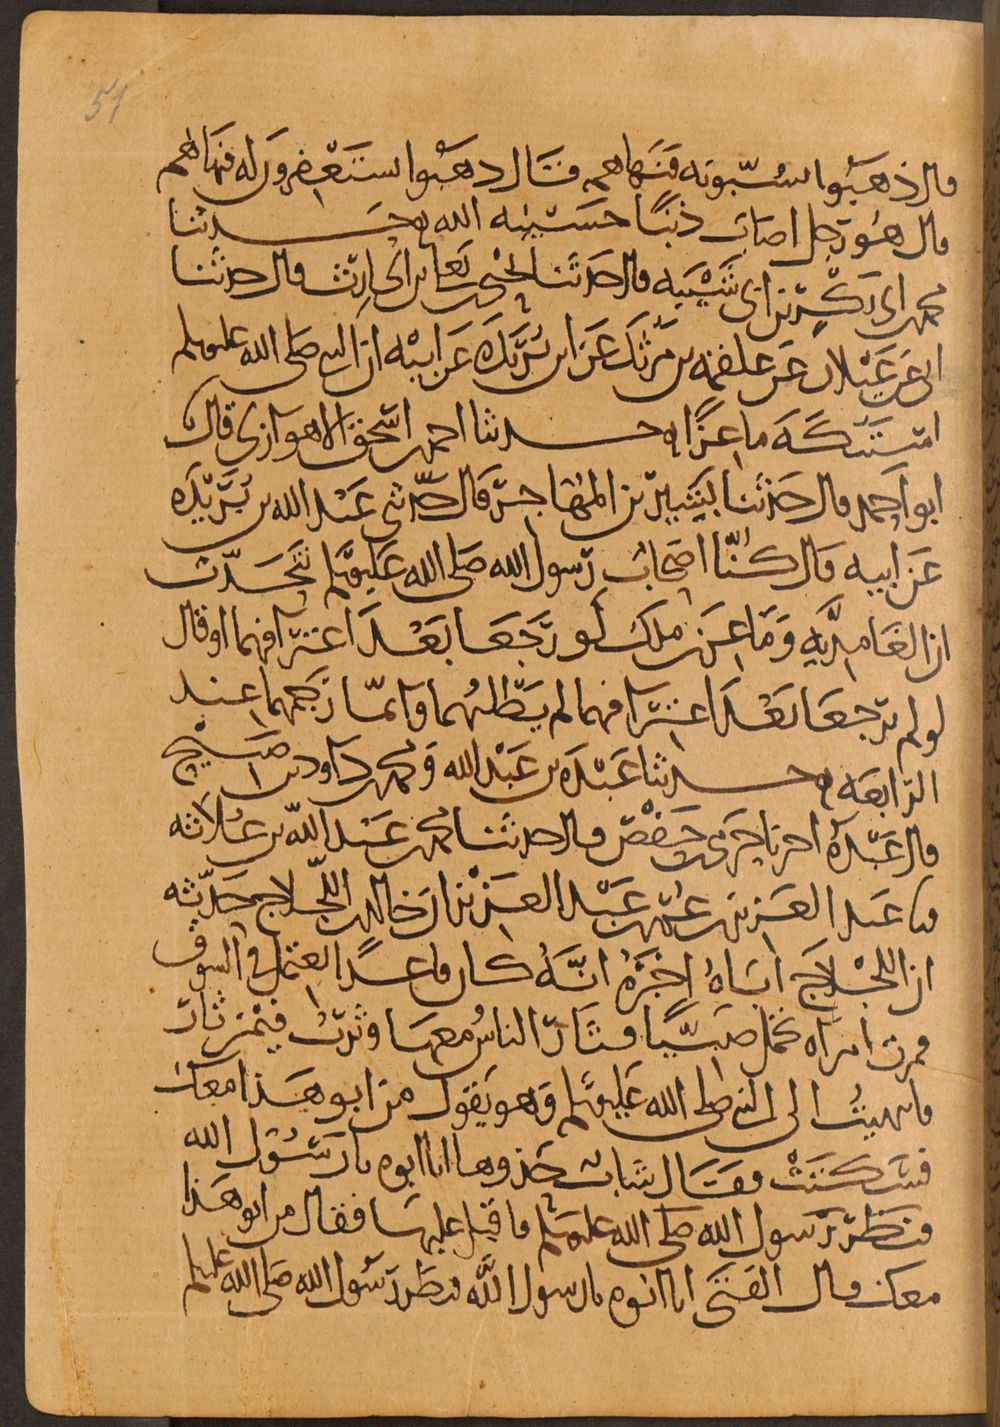 51
قال ذهبوا يسبونه فنهاهم فقال ذهبوا يستغفرون له فنهاهم
قال هو رجل اصاب ذنبا حسيبه الله حدثنا
محمد بن ابي بكر بن ابي شيبه قال حدثنا يحيى بن يعلى بن الحارث قال حدثنا
ابي عن غيلان عن علقمه بن مرثد عن ابن بريده عن ابيه ان النبي صلى الله عليه وسلم
استنكه ماعزا حدثنا احمد بن اسحق الاهوازي قال
ابو احمد قال حدثنا بشير بن المهاجر قال حدثني عبد الله بن بريده
عن ابيه قال كنا اصحاب رسول الله صلى الله عليه وسلم نتحدث
ان الغامديه وماعز بن ملك لو رجعا بعد اعترافهما او قال
لو لم يرجعا بعد اعترافهما لم يطلبهما وانما رجمهما عند
الرابعه حدثنا عبده بن عبد الله ومحمد بن داود بن صبيح
قال عبده اخبرنا حرمي بن حفص قال حدثنا محمد بن عبد الله بن علاثه
نا عبد العزيز بن عمر بن عبد العزيز ان خالد بن اللجلاج حدثه
ان اللجلاج اباه اخبره انه كان قاعدا يعتمل في السوق
فمرت امراه تحمل صبيا فثار الناس معها وثرت فيمن ثار
فانتهيت الى النبي صلى الله عليه وسلم وهو يقول من ابو هذا معك
فسكتت فقال شاب حذوها انا ابوه يا رسول الله
فنظر رسول الله صلى الله عليه وسلم فاقبل عليها فقال من ابو هذا
معك قال الفتى انا ابوه يا رسول الله فنظر رسول الله صلى الله عليه وسلم